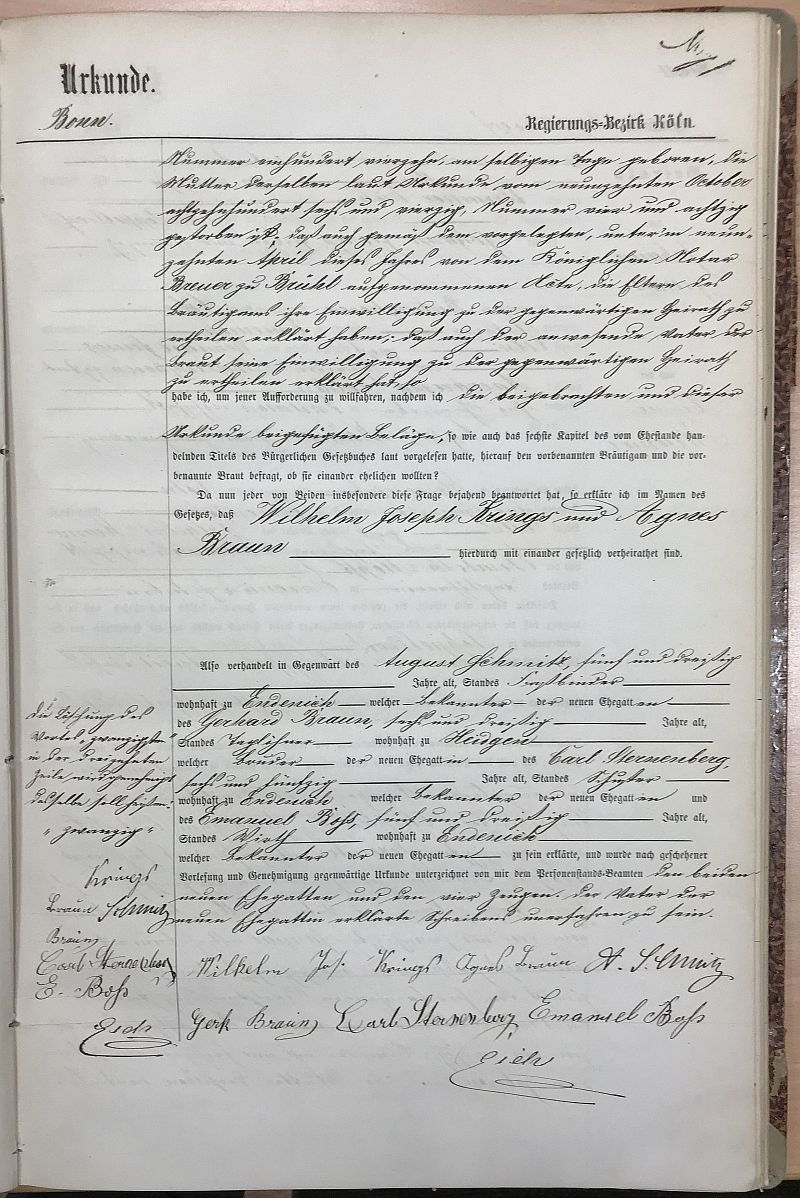 Urkunde.
Bonn.
Regierungs-Bezirk Köln.
Nummer einhundert vierzehn, am selbigen Tage geboren, die
Mutter derselben laut Urkunde vom neunzehnten October
achtzehnhundert sechs und vierzig, Nummer vier und achtzig
gestorben ist; daß auch gemäß dem vorgelegten, unter'm neun-
zehnten April dieses Jahres von dem Königlichen Notar
Breuer zu Brühl aufgenommenen Acte, die Eltern des
Bräutigams ihre Einwilligung zu der gegenwärtigen Heirath zu
ertheilen erklärt haben; daß auch der anwesende Vater der
Braut seine Einwilligung zu der gegenwärtigen Heirath
zu ertheilen erklärt hat, so
habe ich, um jener Aufforderung zu willfahren, nachdem ich die beigebrachten und dieser
Urkunde beigefügten Beläge, so wie auch das sechste Kapitel des vom Ehestande han-
delnden Titels des Bürgerlichen Gesetzbuches laut vorgelesen hatte, hierauf den vorbenannten Bräutigam und die vor-
benannte Braut befragt, ob sie einander ehelichen wollten?
Da nun jeder von Beiden insbesondere diese Frage bejahend beantwortet hat, so erkläre ich im Namen des
Gesetzes, daß Wilhelm Joseph Krings und Agnes
Braun hierdurch mit einander gesetzlich verheirathet sind.
Also verhandelt in Gegenwart des August Schmitz, fünf und dreißig
Jahre alt, Standes Faßbinder
wohnhaft zu Endenich welcher Bekannter der neuen Ehegatten
des Gerhard Braun, sechs und dreißig Jahre alt,
Standes Taglöhner wohnhaft zu Heidgen
welcher Bruder der neuen Ehegattin des Carl Sternenberg,
sechs und fünfzig Jahre alt, Standes Schuster
wohnhaft zu Endenich welcher Bekannter der neuen Ehegatten und
des Emanuel Boss, fünf und dreißig Jahre alt,
Standes Wirth wohnhaft zu Endenich
welcher Bekannter der neuen Ehegatten zu sein erklärte, und wurde nach geschehener
Vorlesung und Genehmigung gegenwärtige Urkunde unterzeichnet von mir dem Personenstands-Beamten den beiden
neuen Ehegatten und den vier Zeugen. Der Vater der
neuen Ehegattin erklärte Schreibens unerfahren zu sein.
Wilhelm Jos. Krings Agnes Braun A. Schmitz
Gerh Braun Carl Sternenberg Emanuel Boss
Eich
Die Löschung des
Wortes „zwanzigsten"
in der dreizehnten
Zeile wird genehmigt
dasselbe soll heißen:
„zwanzig"
Krings
Braun Schmitz
Braun
Carl Sternenberg
E. Boss
Eich